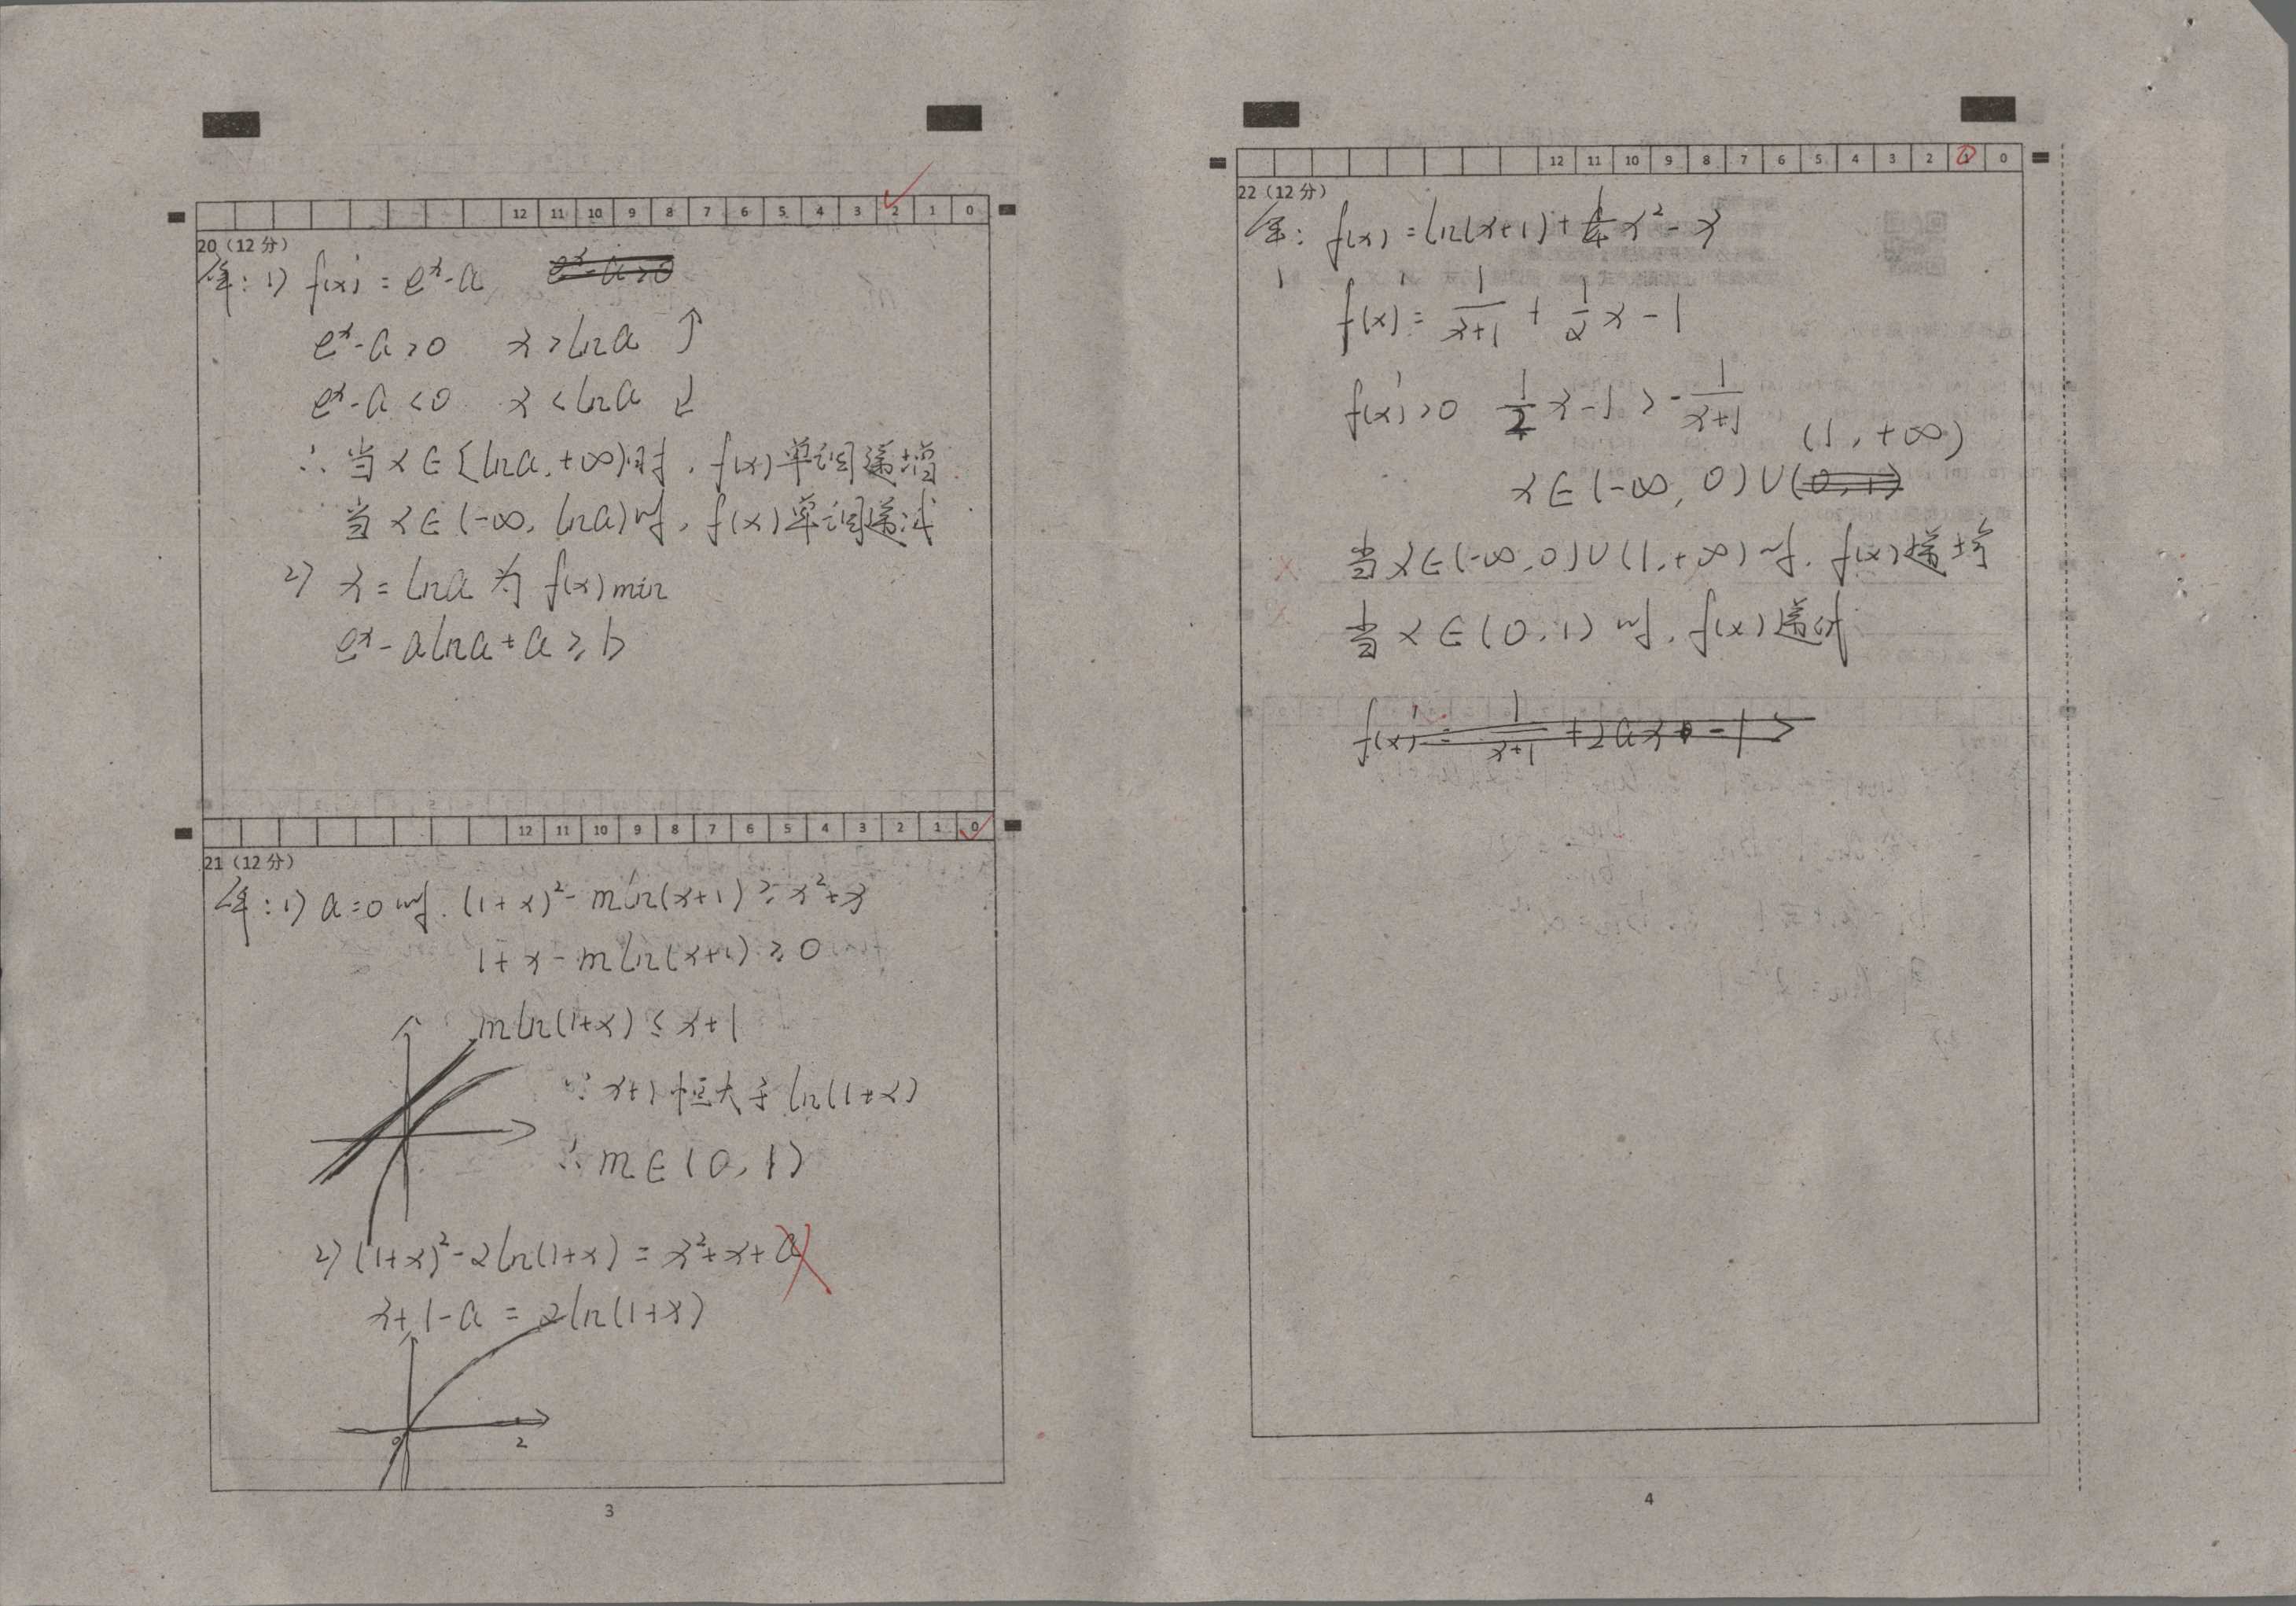 12 11 10 9 8 7 6 5 4 3 2 1 0
20（12 分）
解: 1) f(x)' = e^x - a
e^x - a > 0 x > ln a ↑
e^x - a < 0 x < ln a ↓
∴ 当 x ∈ [ln a, +∞) 时, f(x) 单调递增
当 x ∈ (-∞, ln a) 时, f(x) 单调递减
2) x = ln a 为 f(x) min
e^x - a ln a + a ≥ b
12 11 10 9 8 7 6 5 4 3 2 1 0
21（12 分）
解: 1) a = 0 时. (1+x)² - m ln(x+1) ≥ x² + x
1 + x - m ln(x+1) ≥ 0
m ln(1+x) ≤ x+1
∵ x+1 恒大于 ln(1+x)
∴ m ∈ (0, 1)
2) (1+x)² - 2ln(1+x) = x² + x + a
x + 1 - a = 2ln(1+x)
0 2
3
12 11 10 9 8 7 6 5 4 3 2 1 0
22（12 分）
解: f(x) = ln(x+1) + 1/4 x² - x
f(x)' = 1/(x+1) + 1/2 x - 1
f(x)' > 0 1/2 x - 1 > - 1/(x+1)
(1, +∞)
x ∈ (-∞, 0) ∪ (0, 1)
当 x ∈ (-∞, 0) ∪ (1, +∞) 时. f(x) 递增
当 x ∈ (0, 1) 时. f(x) 递减
f(x)' = 1/(x+1) + 2ax - 1 >
4